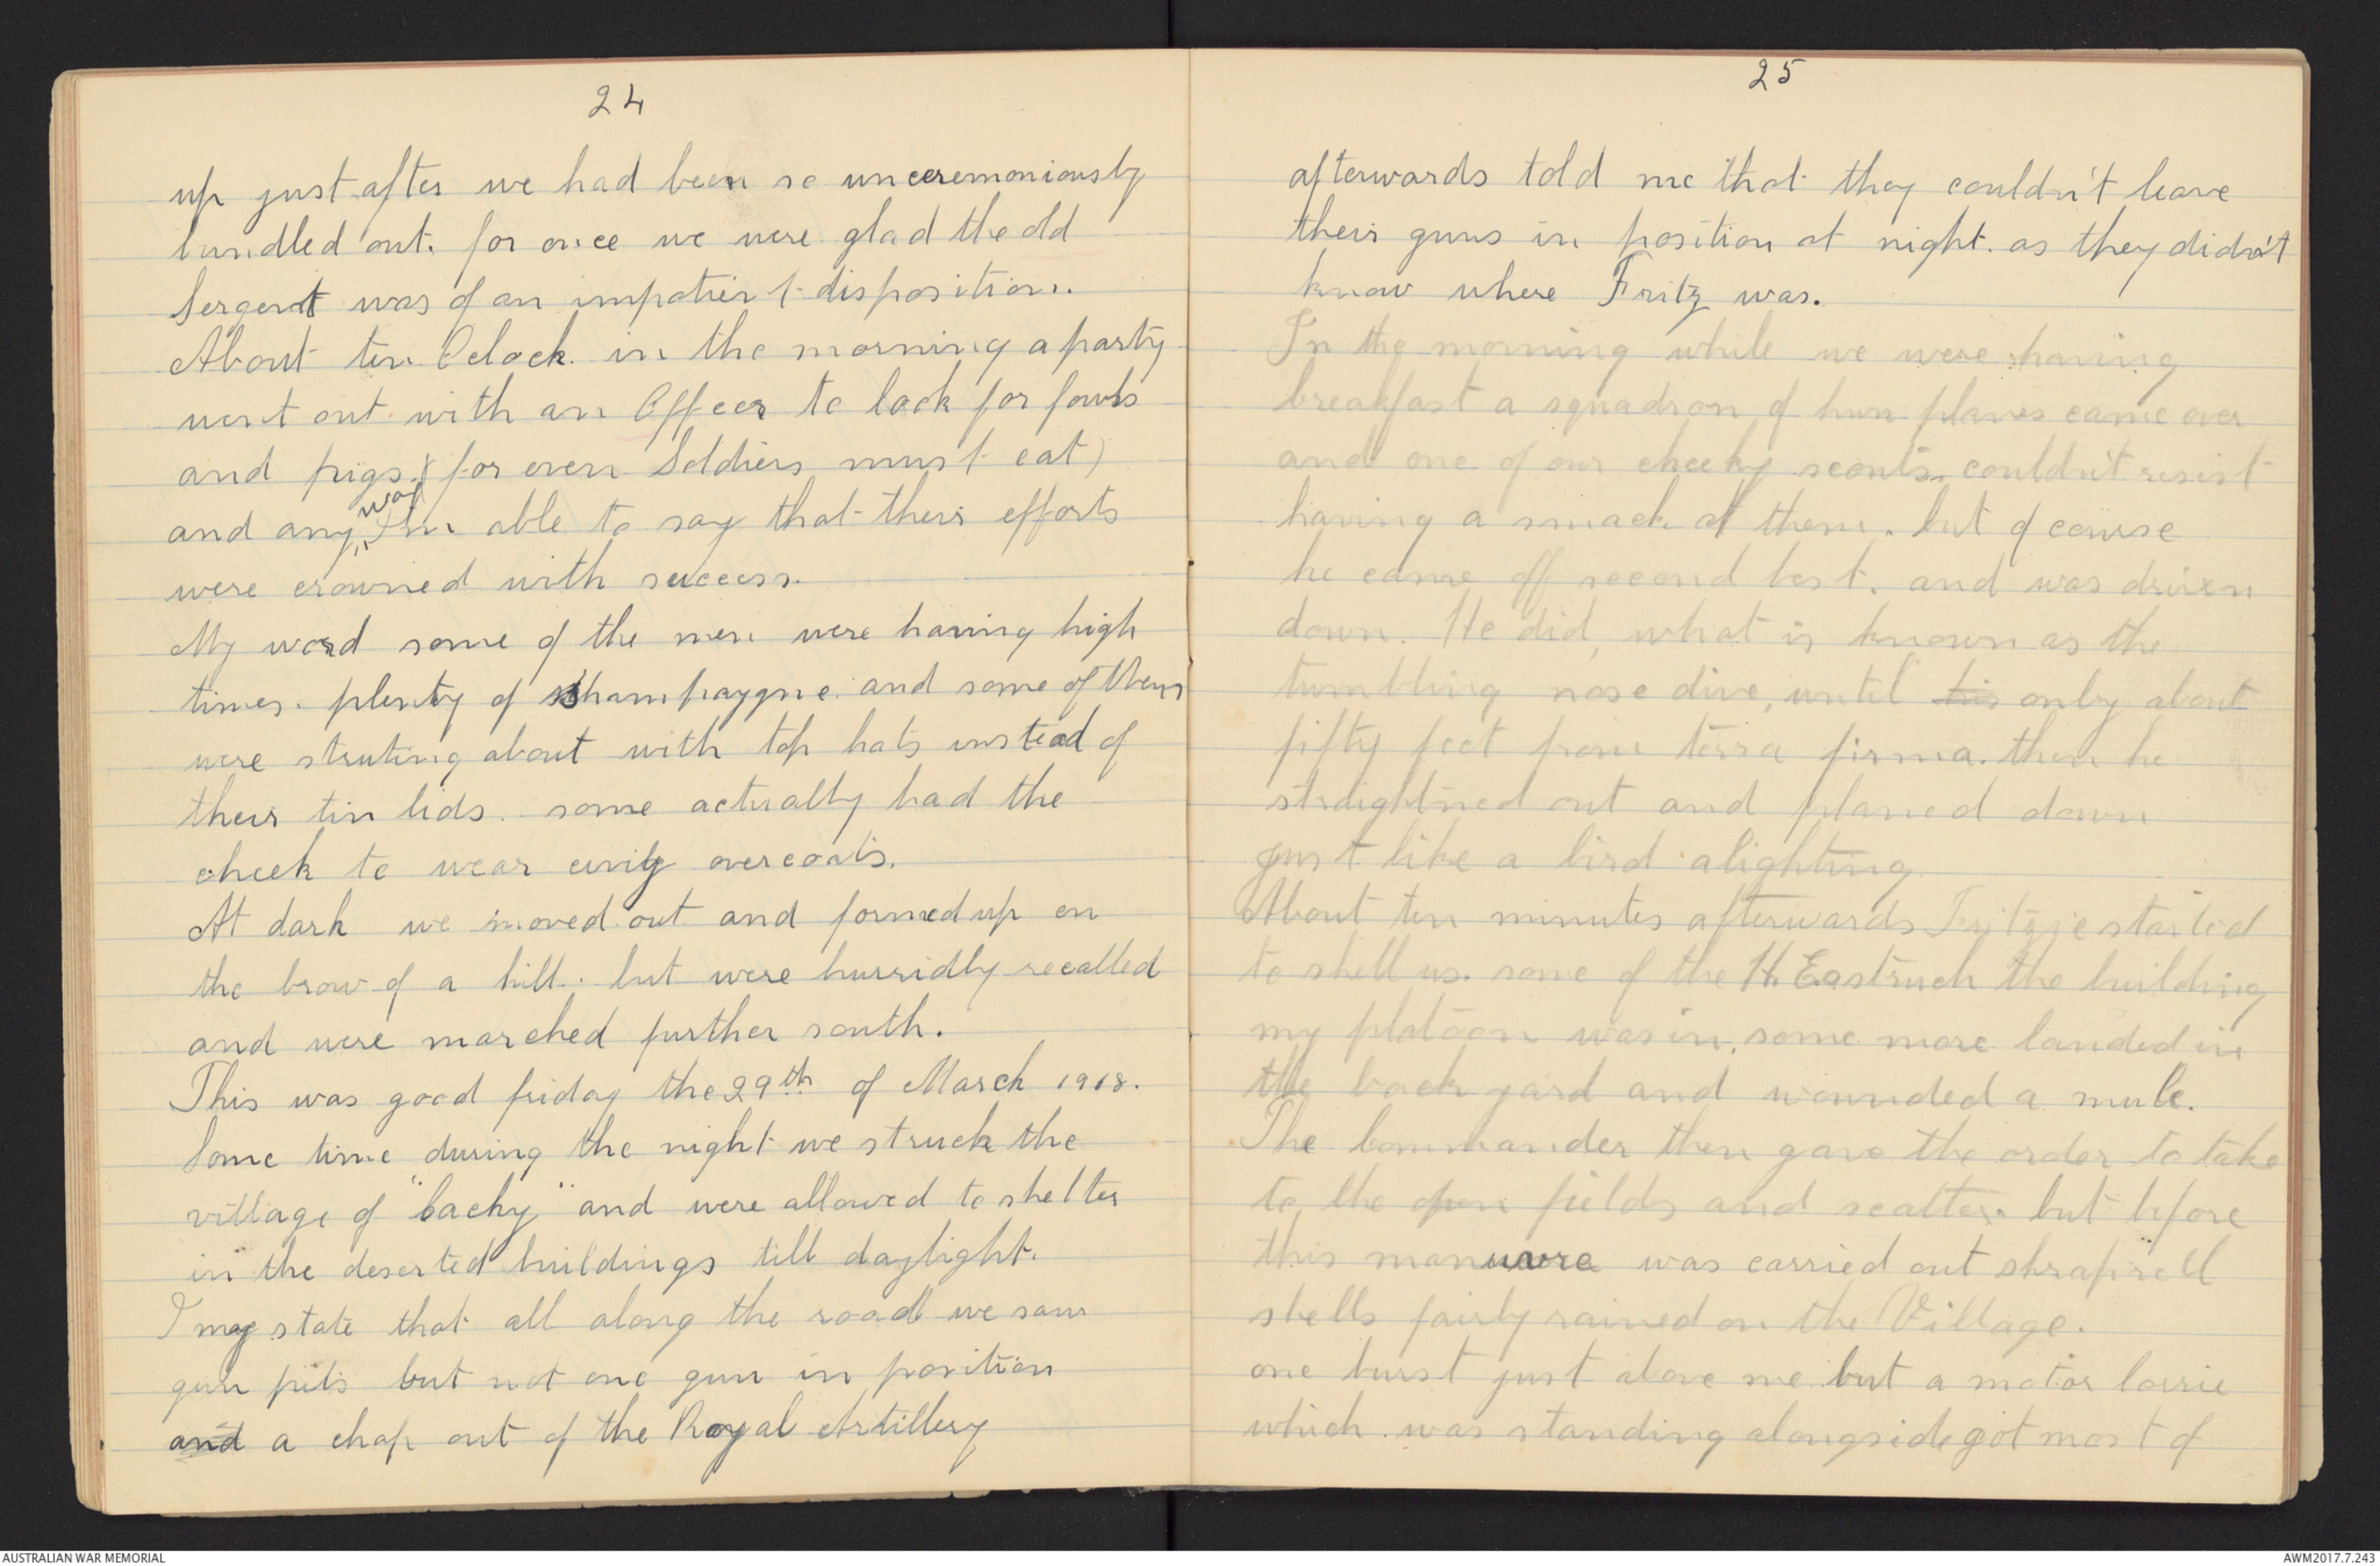 24
up just after we had been so unceremoniously
bundled out. for once we were glad the old
Sergent was of an impatient disposition.
About ten Oclock in the morning a party
went out with an Officer to look for fowls
and pigs. (for even Soldiers must eat)
and any way I'm able to say that theirs efforts
were crowned with success.
My word some of the men were having high
times. plenty of shampaygne. and some of them
were struting about with top hats instead of
theirs tin lids. some actually had the
cheek to wear civily overcoats.
At dark we moved out and formed up on
the brow of a hill. but were hurridly recalled
and were marched further south.
This was good friday the 29th of March 1918.
Some time during the night we struck the
village of "Cachy" and were allowed to shelter
in the deserted buildings till daylight.
I may state that all along the road we saw
gun pits but not one gun in position
and a chap out of the Royal Artillery
25
afterwards told me that they couldn't leave
theirs guns in position at night. as they didn't
know where Fritz was.
In the morning while we were having
breakfast a squadron of hun planes came over
and one of our cheeky scouts. couldn't resist
having a smack at them. but of course
he came off second best. and was driven
down. He did, what is known as the
tumbling nose dive, until his only about
fifty feet from terra firma. then he
straightned out and planed down
just like a bird alighting.
About ten minutes afterwards Fritzie started
to shell us. some of the H.E. struck the building
my platoon was in, some more landed in
the back yard and wounded a mule.
The Commander then gave the order to take
to the open fields and scatter. but before
this manuvre was carried out shrapnell
shells fairly rained on the Village.
one burst just above me but a motor lorrie
which was standing alongside got most of
AUSTRALIAN WAR MEMORIAL
AWM2017.7.243